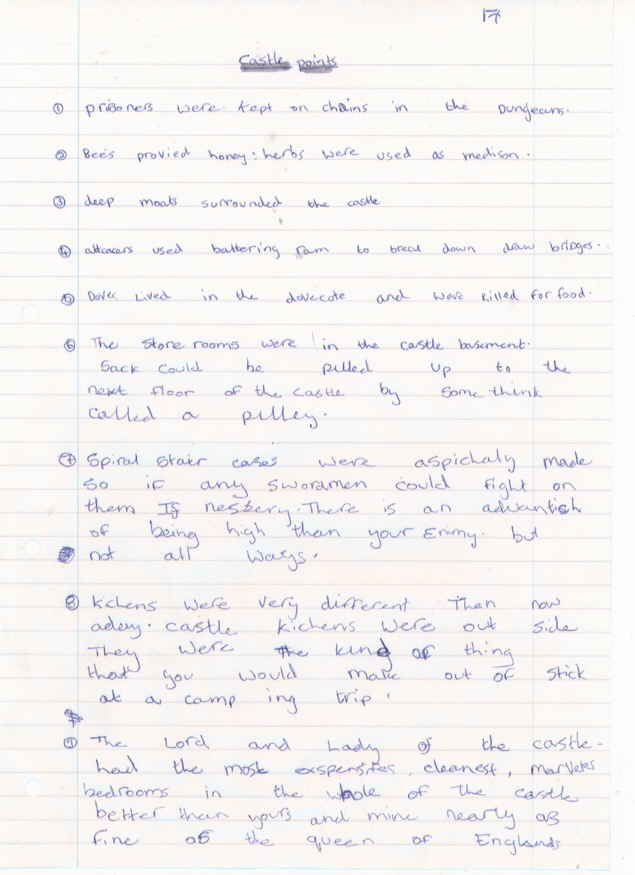 17
Castle points
① prisoners were kept on chains in the Dungeons.
② Bees provied honey: herbs were used as medison.
③ deep moats surrounded the castle
④ attacers used battering ram to break down draw bridges.
⑤ Doves Lived in the dovecote and were killed for food.
⑥ The store rooms were in the castle basement.
Sack could be pulled up to the
next floor of the castle by some think
called a pulley.
⑦ Spiral stair cases were aspichaly made
so if any swordmen could fight on
them If nesbery. There is an advantich
of being high than your Enmy. but
not all ways.
⑧ Kchens were very different Then now
adeay. castle kichens were out side
They were the kind of thing
that you would make out of stick
at a camp ing trip.
⑨ The Lord and Lady of the castle.
had the most exspensites, cleanest, marveles
bedrooms in the whole of the castle
better than yours and mine nearly as
fine of the queen of Englands